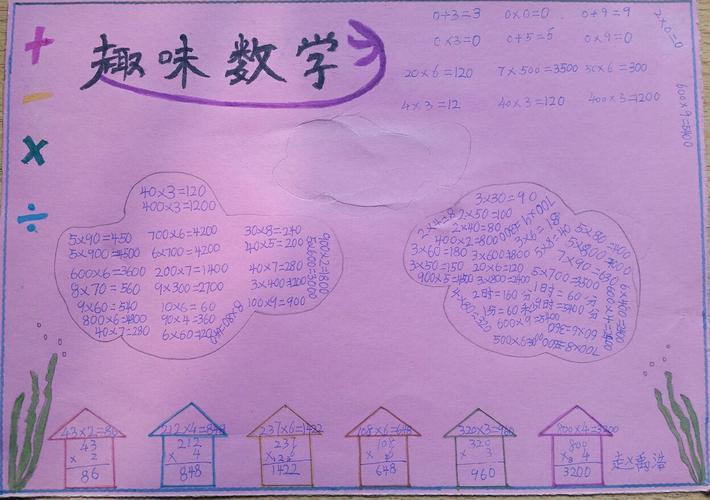 趣味数学
+
−
×
÷
0÷3=3 0×0=0 0+9=9
0×3=0 0+5=5 0×9=0
20×6=120 7×500=3500 50×6=300
4×3=12 40×3=120 400×3=1200
600×9=5400
40×3=120
400×3=1200
5×90=450 700×6=4200 30×8=240
5×900=4500 6×700=4200 40×5=200
600×6=3600 200×7=1400 40×7=280
8×70=560 9×300=2700 3×400=1200
9×60=540 10×6=60 100×9=900
800×6=4800 90×4=360
40×7=280 6×60=120
900×2=1800
5×600=3000
3×30=90
2×4=8 2×50=100
2×40=80
400×2=800
3×6=18
3×60=180 3×600=1800
3×50=150 20×6=120
900×5=4500 3×800=2400
5×8=40
5×80=400
5×800=4000
7×90=630
5×700=3500
1时=60分
600×9=5400
60×6=360
43×2=86 212×4=848 237×6=1422 108×6=648 320×3=960 800×4=3200
43 212 237 108 320 800
×2 ×4 ×3 ×3 4
86 848 1422 648 960 3200